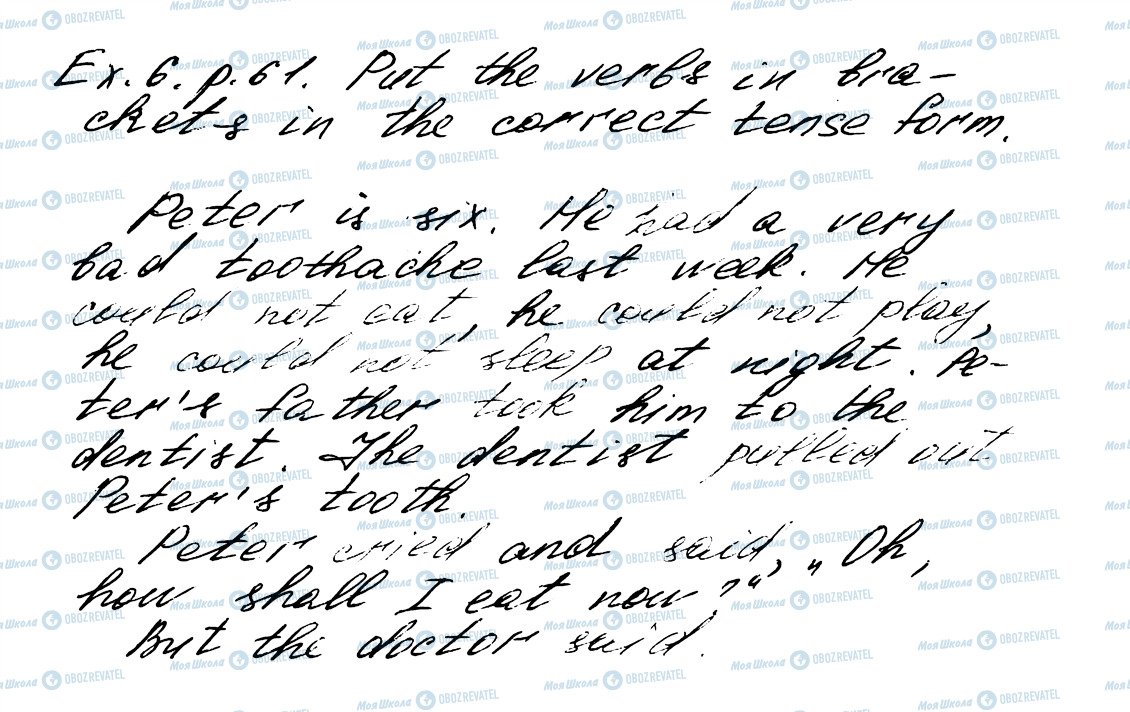 Ex. 6. p. 61. Put the verbs in bra-
ckets in the correct tense form.
Peter is six. He had a very
bad toothache last week. He
could not eat, he could not play,
he could not sleep at night. Pe-
ter's father took him to the
dentist. The dentist pulled out
Peter's tooth.
Peter cried and said, „Oh,
how shall I eat now?"
But the doctor said.